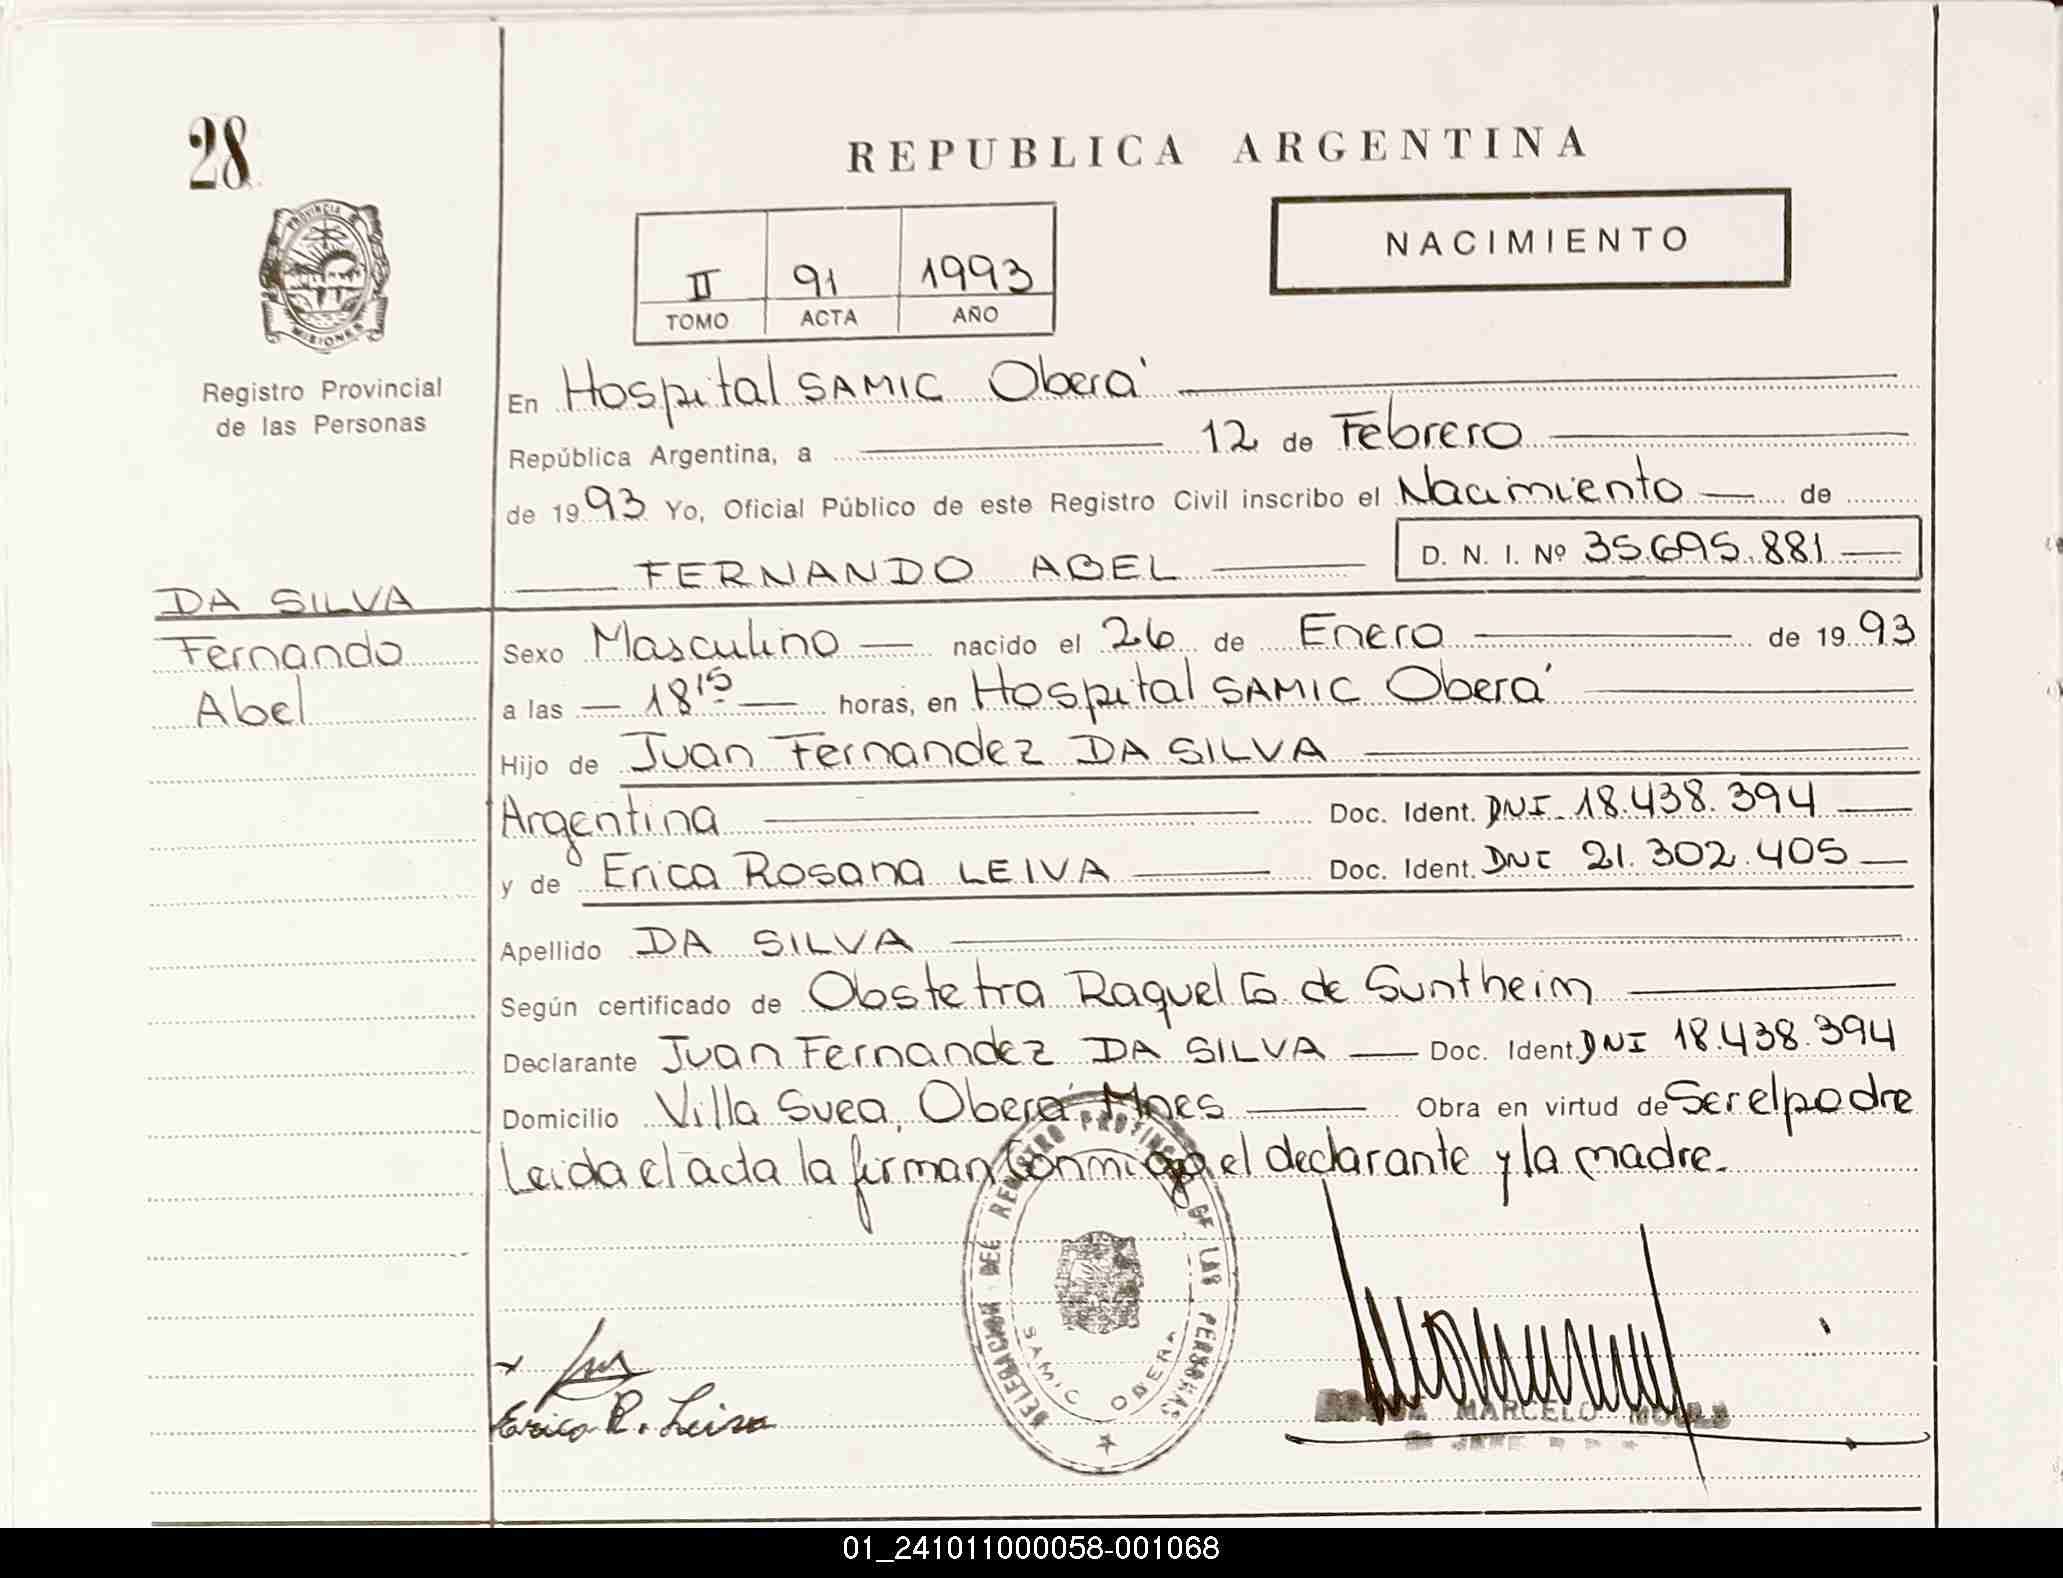 28
REPUBLICA ARGENTINA
PROVINCIA
MISIONES
Registro Provincial
de las Personas
NACIMIENTO
II 91 1993
TOMO ACTA AÑO
En Hospital SAMIC Oberá
República Argentina, a 12 de Febrero
de 1993 Yo, Oficial Público de este Registro Civil inscribo el Nacimiento de
FERNANDO ABEL D. N. I. Nº 35.695.881
DA SILVA
Fernando
Abel
Sexo Masculino nacido el 26 de Enero de 1993
a las 18 15 horas, en Hospital SAMIC Oberá
Hijo de Juan Fernandez DA SILVA
Argentina Doc. Ident. DNI 18.438.394
y de Erica Rosana LEIVA Doc. Ident. DNI 21.302.405
Apellido DA SILVA
Según certificado de Obstetra Raquel de Suntheim
Declarante Juan Fernandez DA SILVA Doc. Ident. DNI 18.438.394
Domicilio Villa Svea, Oberá Mnes Obra en virtud de Ser el padre
Leida el acta la firman conmigo el declarante y la madre.
DELEGACION DEL REGISTRO PROVINCIAL DE LAS PERSONAS
SAMIC OBERA
Erica R. Leiva
MARCELO
01_241011000058-001068